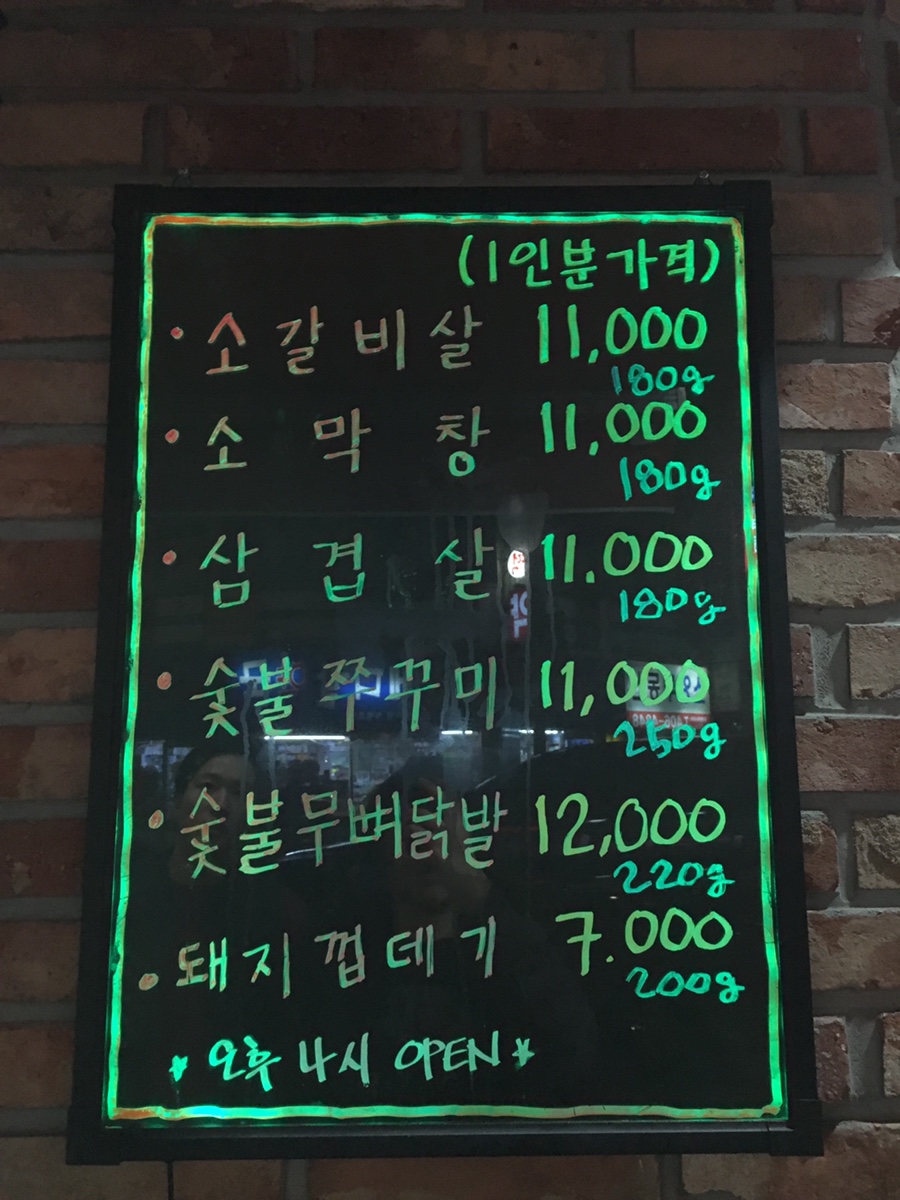 (1인분가격)
• 소갈비살 11,000
180g
• 소막창 11,000
180g
• 삼겹살 11.000
180g
• 숯불쭈꾸미 11,000
250g
• 숯불무뼈닭발 12,000
220g
• 돼지껍데기 7.000
200g
* 오후 4시 OPEN *